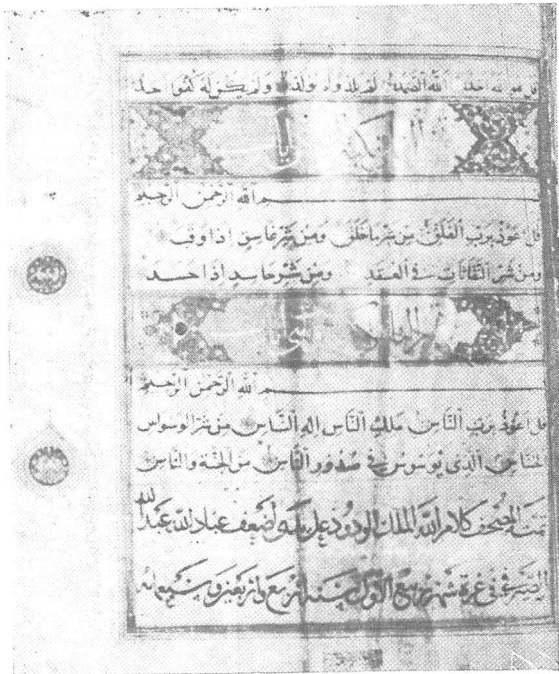 قل هو الله احد الله الصمد لم يلد ولم يولد ولم يكن له كفوا احد
بسم الله الرحمن الرحيم
قل اعوذ برب الفلق من شر ما خلق ومن شر غاسق اذا وقب
ومن شر النفاثات في العقد ومن شر حاسد اذا حسد
بسم الله الرحمن الرحيم
قل اعوذ برب الناس ملك الناس اله الناس من شر الوسواس
الخناس الذي يوسوس في صدور الناس من الجنة والناس
تمت المصحف كلام الله الملك الودود على يد اضعف عباد الله عبد الله
في غرة شهر ربيع الاول سنة اربع واربعين وتسعمائه